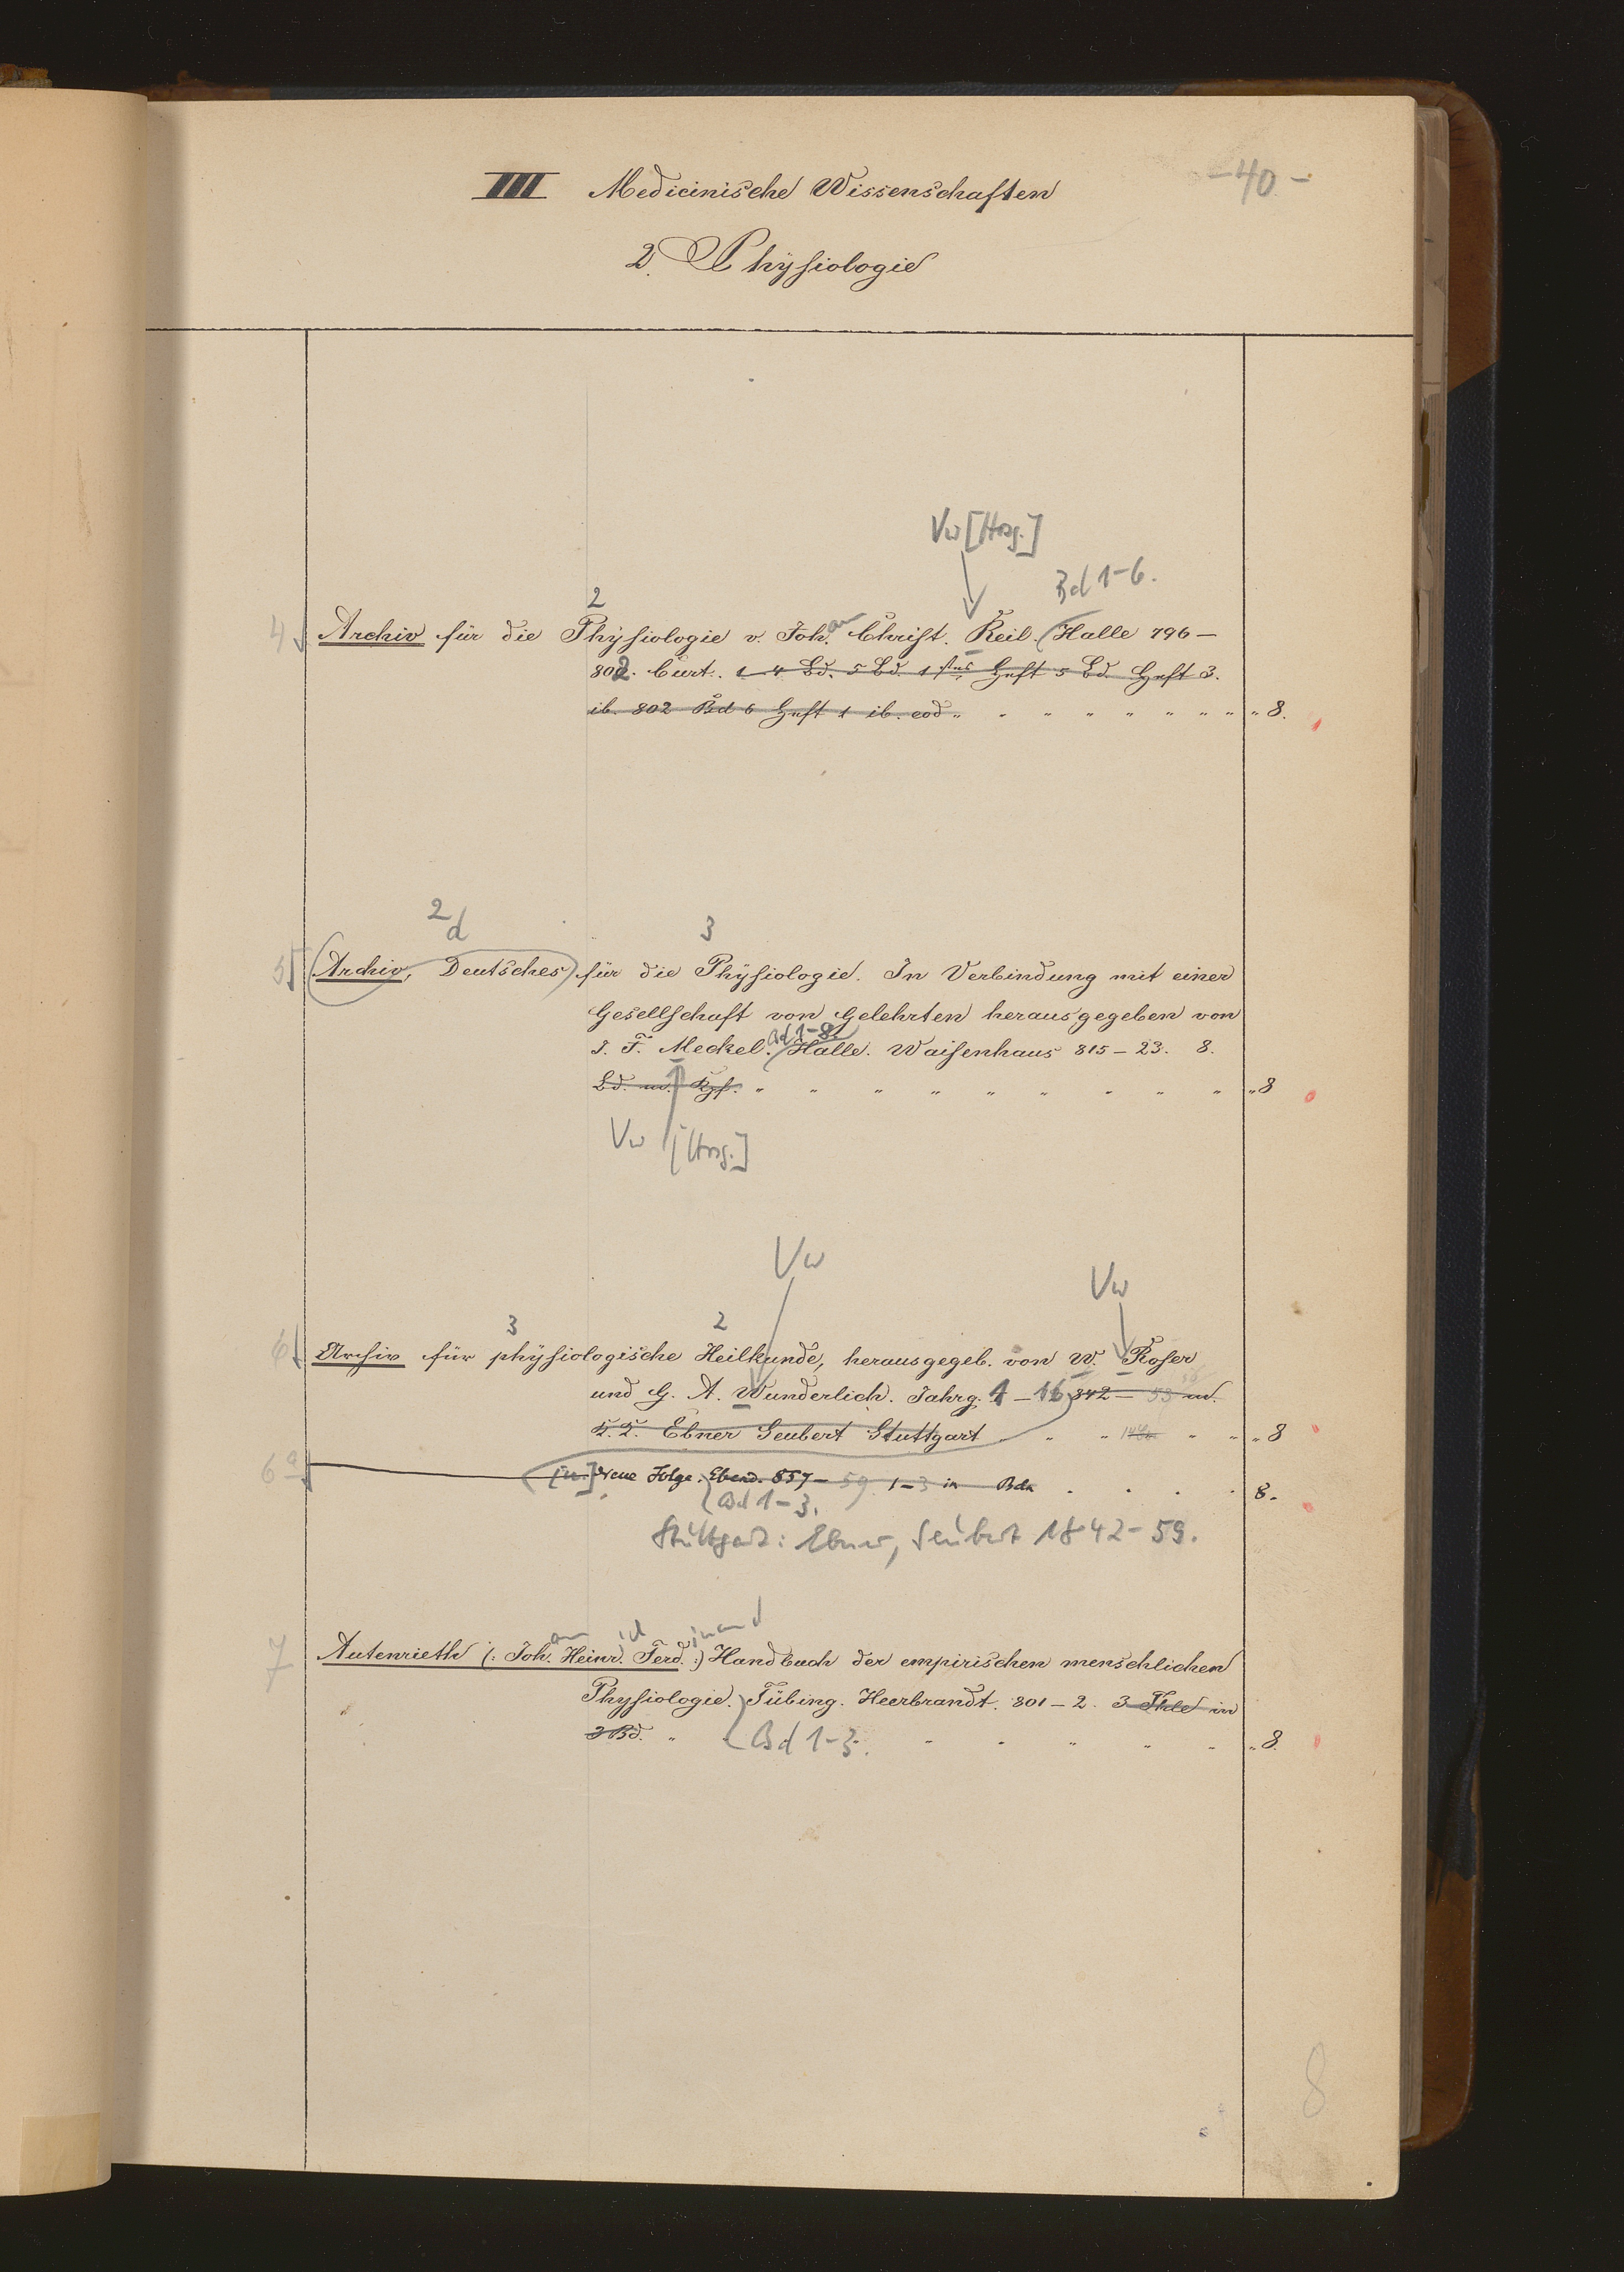 III Medicinische Wissenschaften
-40-
2. Physiologie
Vw [Hrsg.]
Bd 1-6.
2
4 Archiv für die Physiologie v. Joh.ann Christ. Reil. (Halle 796 –
802. Curt. 1-4 Bd. 5 Bd. 1stes Heft 5 Bd. Heft 3.
ib. 802 Bd 6 Heft 1 ib. eod „ „ „ „ „ „ „ „ „ 8.
2 d 3
5 (Archiv, Deutsches) für die Physiologie. In Verbindung mit einer
Gesellschaft von Gelehrten herausgegeben von
Bd 1-8
J. F. Meckel. Halle. Waisenhaus 815 – 23. 8.
Bd. m. Kpf. „ „ „ „ „ „ „ „ „ „ 8
Vw [Hrsg.]
Vw
Vw
3 2
6 Archiv für physiologische Heilkunde, herausgegeb. von W. Roser
und G. A. Wunderlich. Jahrg. 1 – 16 842 –
Ebner Seubert Stuttgart „ „ „ „ „ 8
6a [u.] Neue Folge. Ebend. 857 – 59 1–3 in Bdn . . . . 8.
Bd 1-3.
Stuttgart: Ebner, Seubert 1842-59.
ann ich inand
7 Autenrieth (: Joh. Heinr. Ferd. :) Handbuch der empirischen menschlichen
Physiologie. Tübing. Heerbrandt. 801 – 2. 3 Thle in
3 Bd. „ Bd 1-3. „ „ „ „ „ „ 8.
8